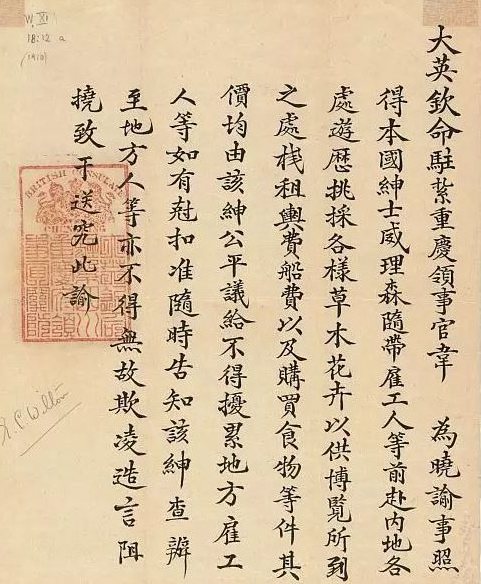 W. XI
18:12 a
(1910)
大英欽命駐紮重慶領事官韋 為曉諭事照
得本國紳士威理森隨帶雇工人等前赴內地各
處遊歷挑採各樣草木花卉以供博覽所到
之處栈租輿費船費以及購買食物等件其
價均由該紳公平議給不得擾累地方雇工
人等如有尅扣准隨時告知該紳查辦
至地方人等亦不得無故欺凌造言阻
撓致干送究此諭
BRITISH
Wilton